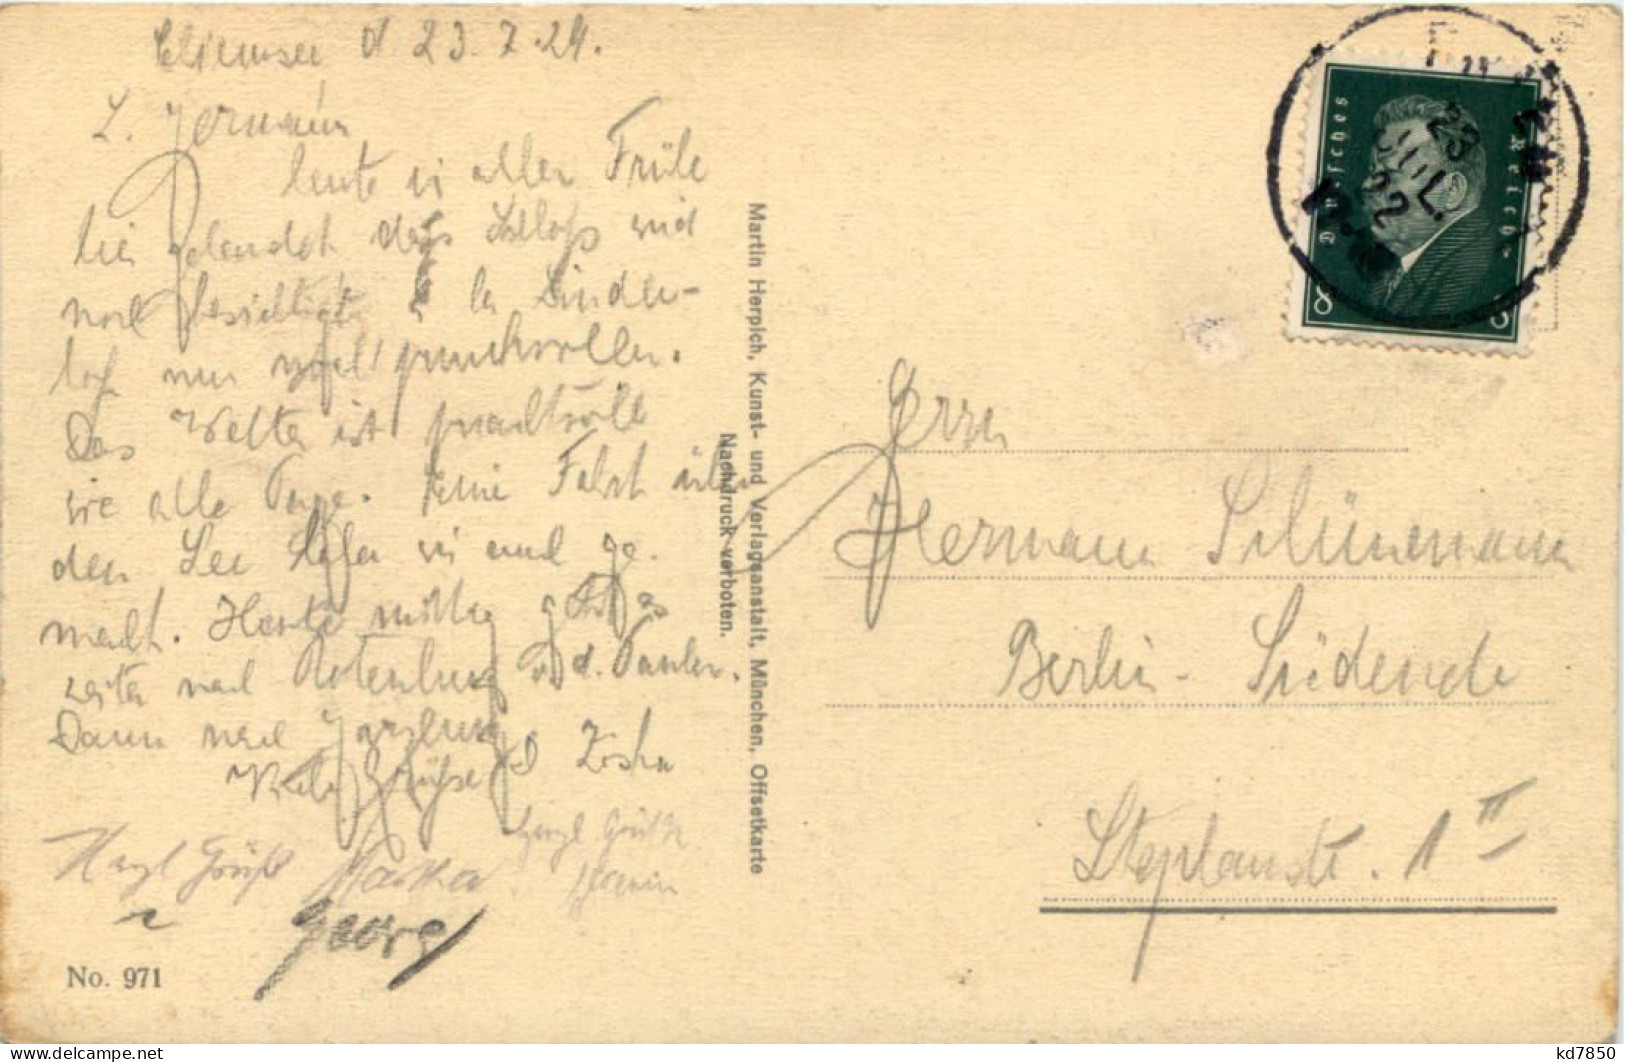 Chiemsee d. 23.7.29.
L. Hermann
heute in aller Frühe
hier gelandet das Schloß wird
noch besichtigt Linder-
hof nur noch prunkvoller.
Das Wetter ist prachtvoll
wie alle Tage. Feine Fahrt über
den See haben wir auch ge-
macht. Heute mittag geht es
weiter nach Rotenburg o. d. Tauber.
Dann nach
Viele Grüße
Herzl Grüß
Herzl Grüße
Georg
No. 971
Martin Herpich, Kunst- und Verlagsanstalt, München, Offsetkarte
Nachdruck verboten.
Deutsches Reich
8 8
23 JUL. 22
Herrn
Hermann Schünemann
Berlin-Südende
Stephanstr. 1 II
kd7850